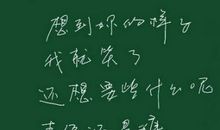 想到你的样子
我就笑了
还想要些什么呢